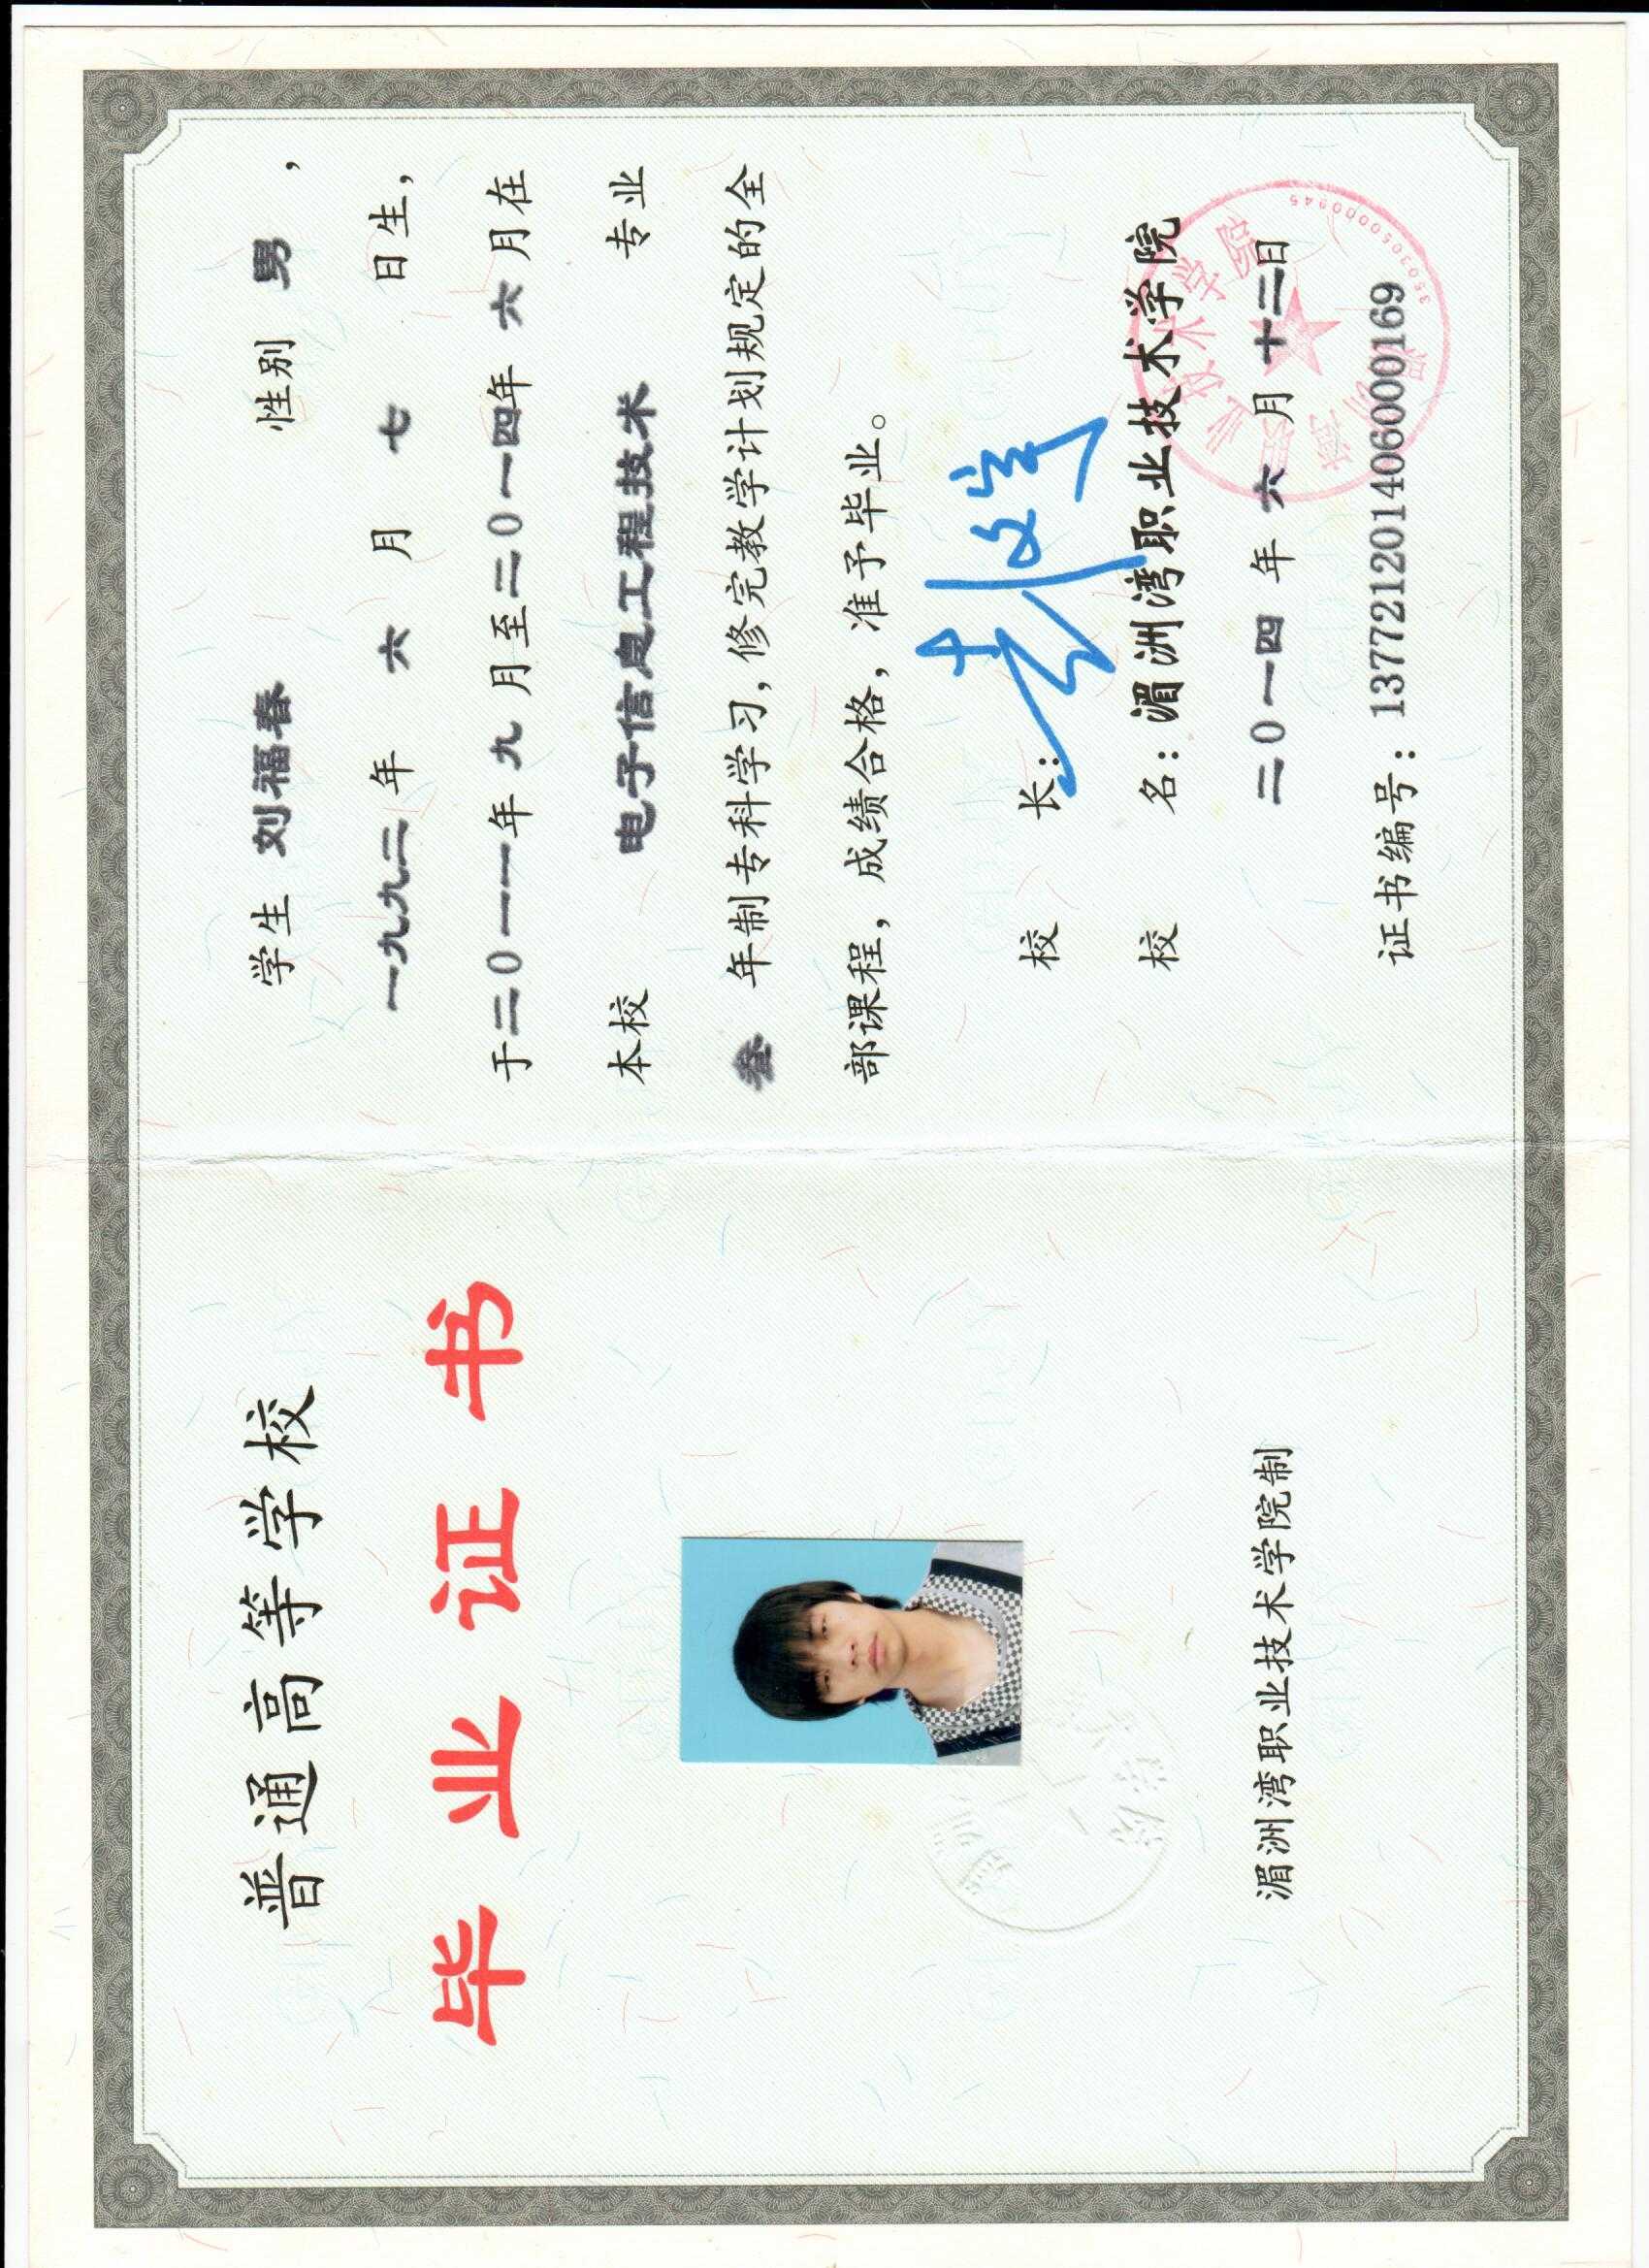 普通高等学校
毕业证书
湄洲湾职业技术学院制
学生 刘福春 性别 男 ，
一九九二 年 六 月 七 日生，
于二〇一一年 九 月至二〇一四年 六 月在
本校 电子信息工程技术 专业
叁 年制专科学习，修完教学计划规定的全
部课程，成绩合格，准予毕业。
校 长：
校 名：湄洲湾职业技术学院
二〇一四 年 六 月 十二日
证书编号：137721201406000169
湄洲湾职业技术学院